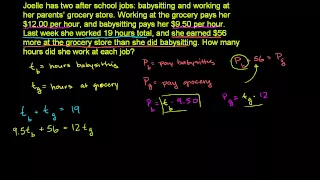 Joelle has two after school jobs: babysitting and working at
her parents' grocery store. Working at the grocery pays her
$12.00 per hour, and babysitting pays her $9.50 per hour.
Last week she worked 19 hours total, and she earned $56
more at the grocery store than she did babysitting. How many
hours did she work at each job?
t_b = hours babysitting
P_b = pay babysitting
P_b + 56 = P_g
t_g = hours at grocery
P_g = pay grocery
t_b + t_g = 19
P_b = t_b · 9.50
P_g = t_g · 12
9.5t_b + 56 = 12t_g